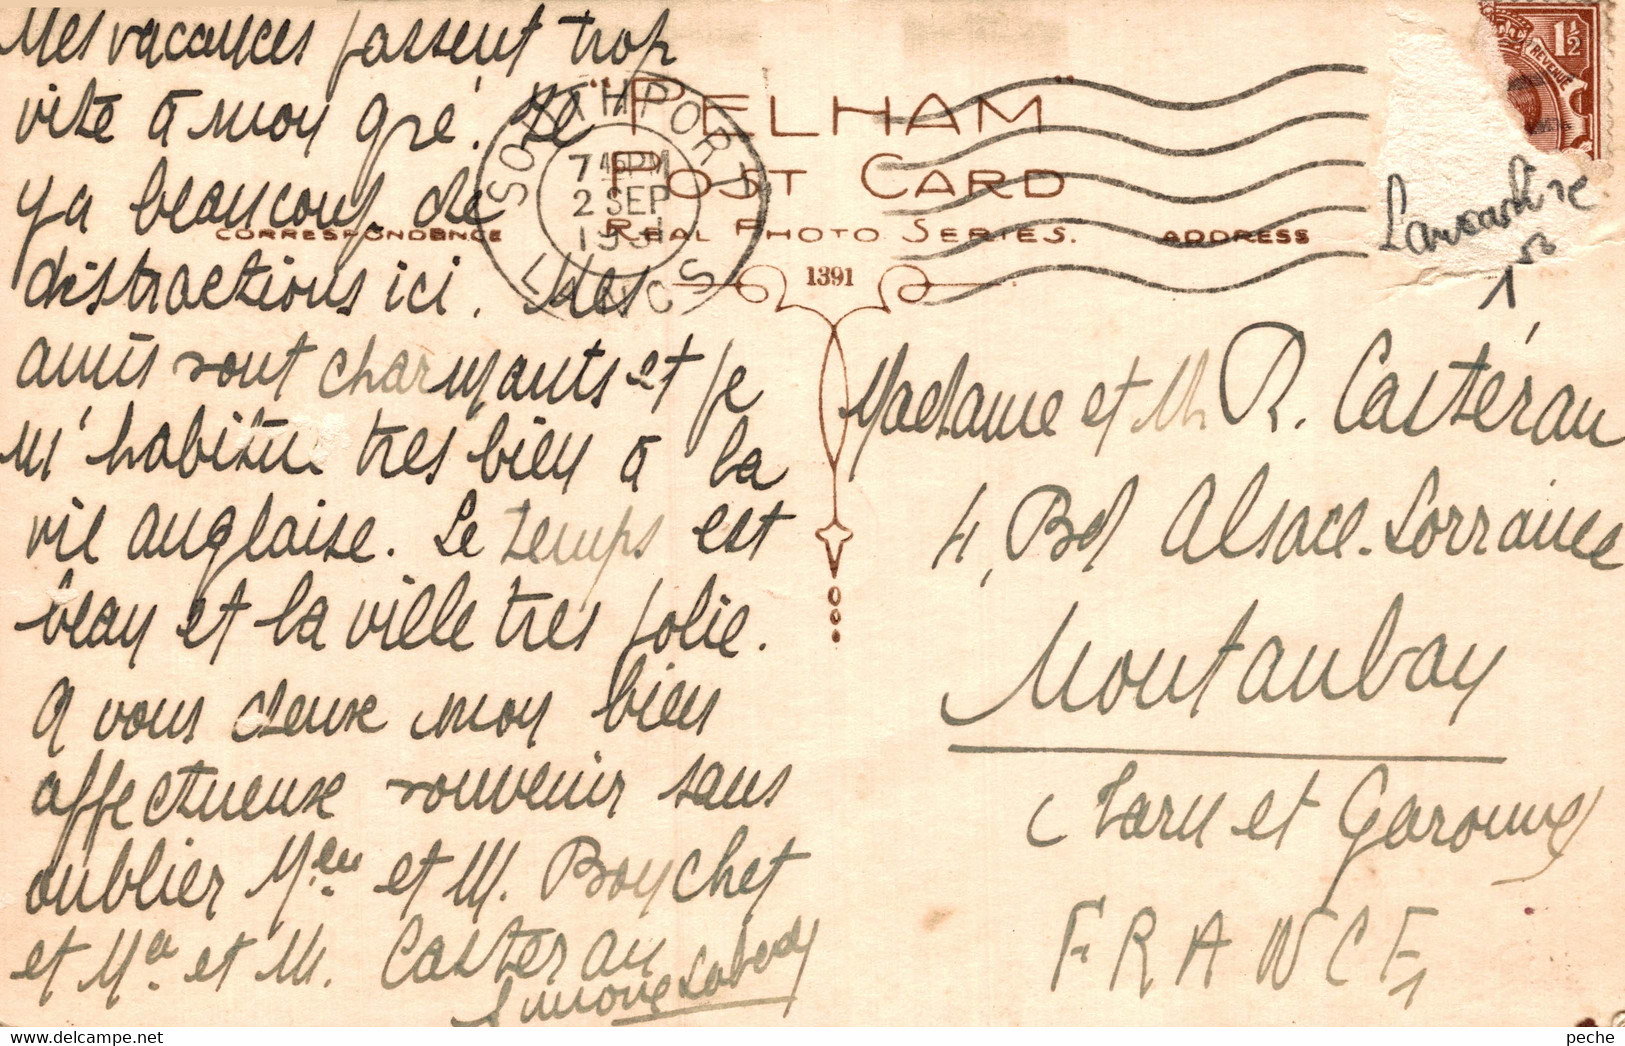 Mes vacances passent trop
vite à mon gré. Il
y a beaucoup de
distractions ici. Mes
amis sont charmants et je
m'habitue très bien à la
vie anglaise. Le temps est
beau et la ville très jolie.
A vous deux mon bien
affectueux souvenir sans
oublier Mme et M. Bouchet
et Me et M. Casteran
Simone
"PELHAM"
POST CARD
CORRESPONDENCE
REAL PHOTO SERIES.
ADDRESS
1391
SOUTHPORT
7 45 PM
2 SEP
193
LANCS
1½
REVENUE
Lancashire
1 50
Madame et M R. Castéran
4, Bd Alsace-Lorraine
Montauban
(Tarn et Garonne)
FRANCE
peche